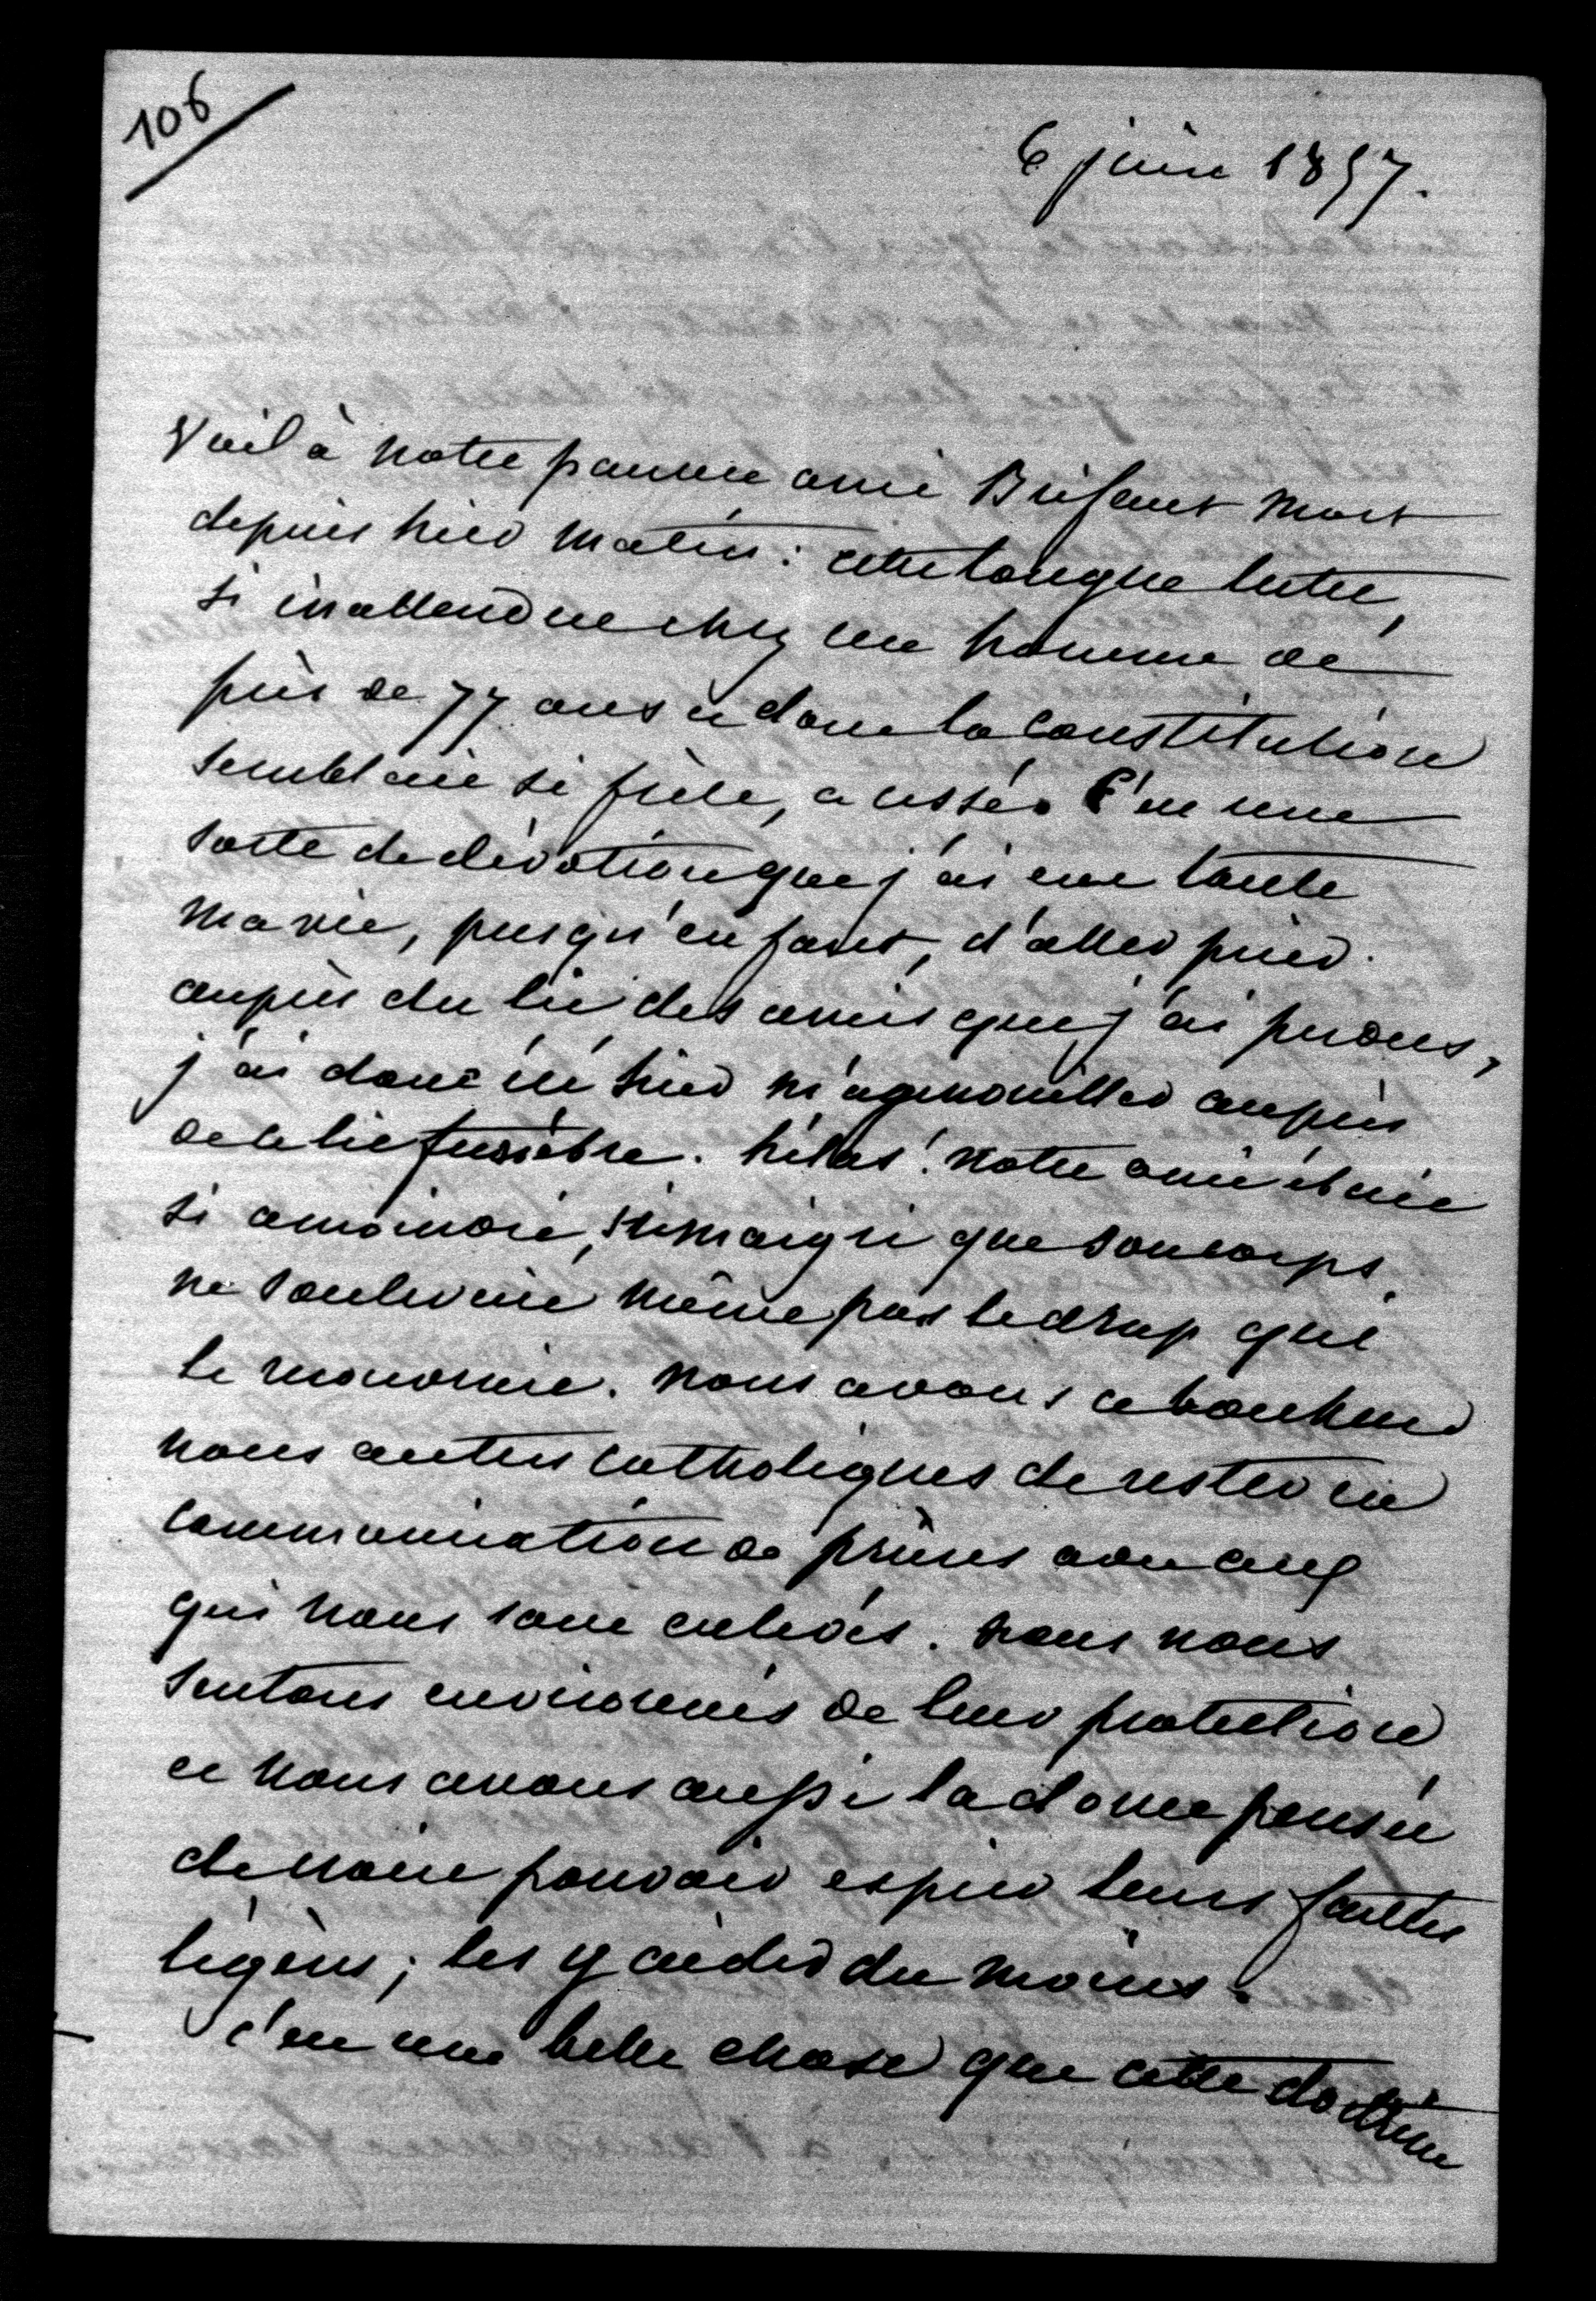 106
6 juin 1857.
Voilà notre pauvre ami Brifaut mort
depuis hier matin : cette longue lutte,
si inattendue chez un homme de
près de 77 ans et dont la constitution
semblait si frêle, a cessé. C'est une
sorte de dévotion que j'ai eue toute
ma vie, jusqu'enfant, d'aller prier
auprès du lit des amis que j'ai perdus,
j'ai donc été hier m'agenouiller auprès
de ce lit funèbre. hélas ! notre ami était
si amoindri, si maigri que son corps
ne soulevait même pas le drap qui
le recouvrait. nous avons ce bonheur
nous autres catholiques de rester en
communication de prières avec ceux
qui nous sont enlevés. nous nous
sentons environnés de leur protection
et nous avons aussi la douce pensée
de notre pouvoir expier leurs fautes
légères ; les y aider du moins.
c'est une belle chose que cette doctrine